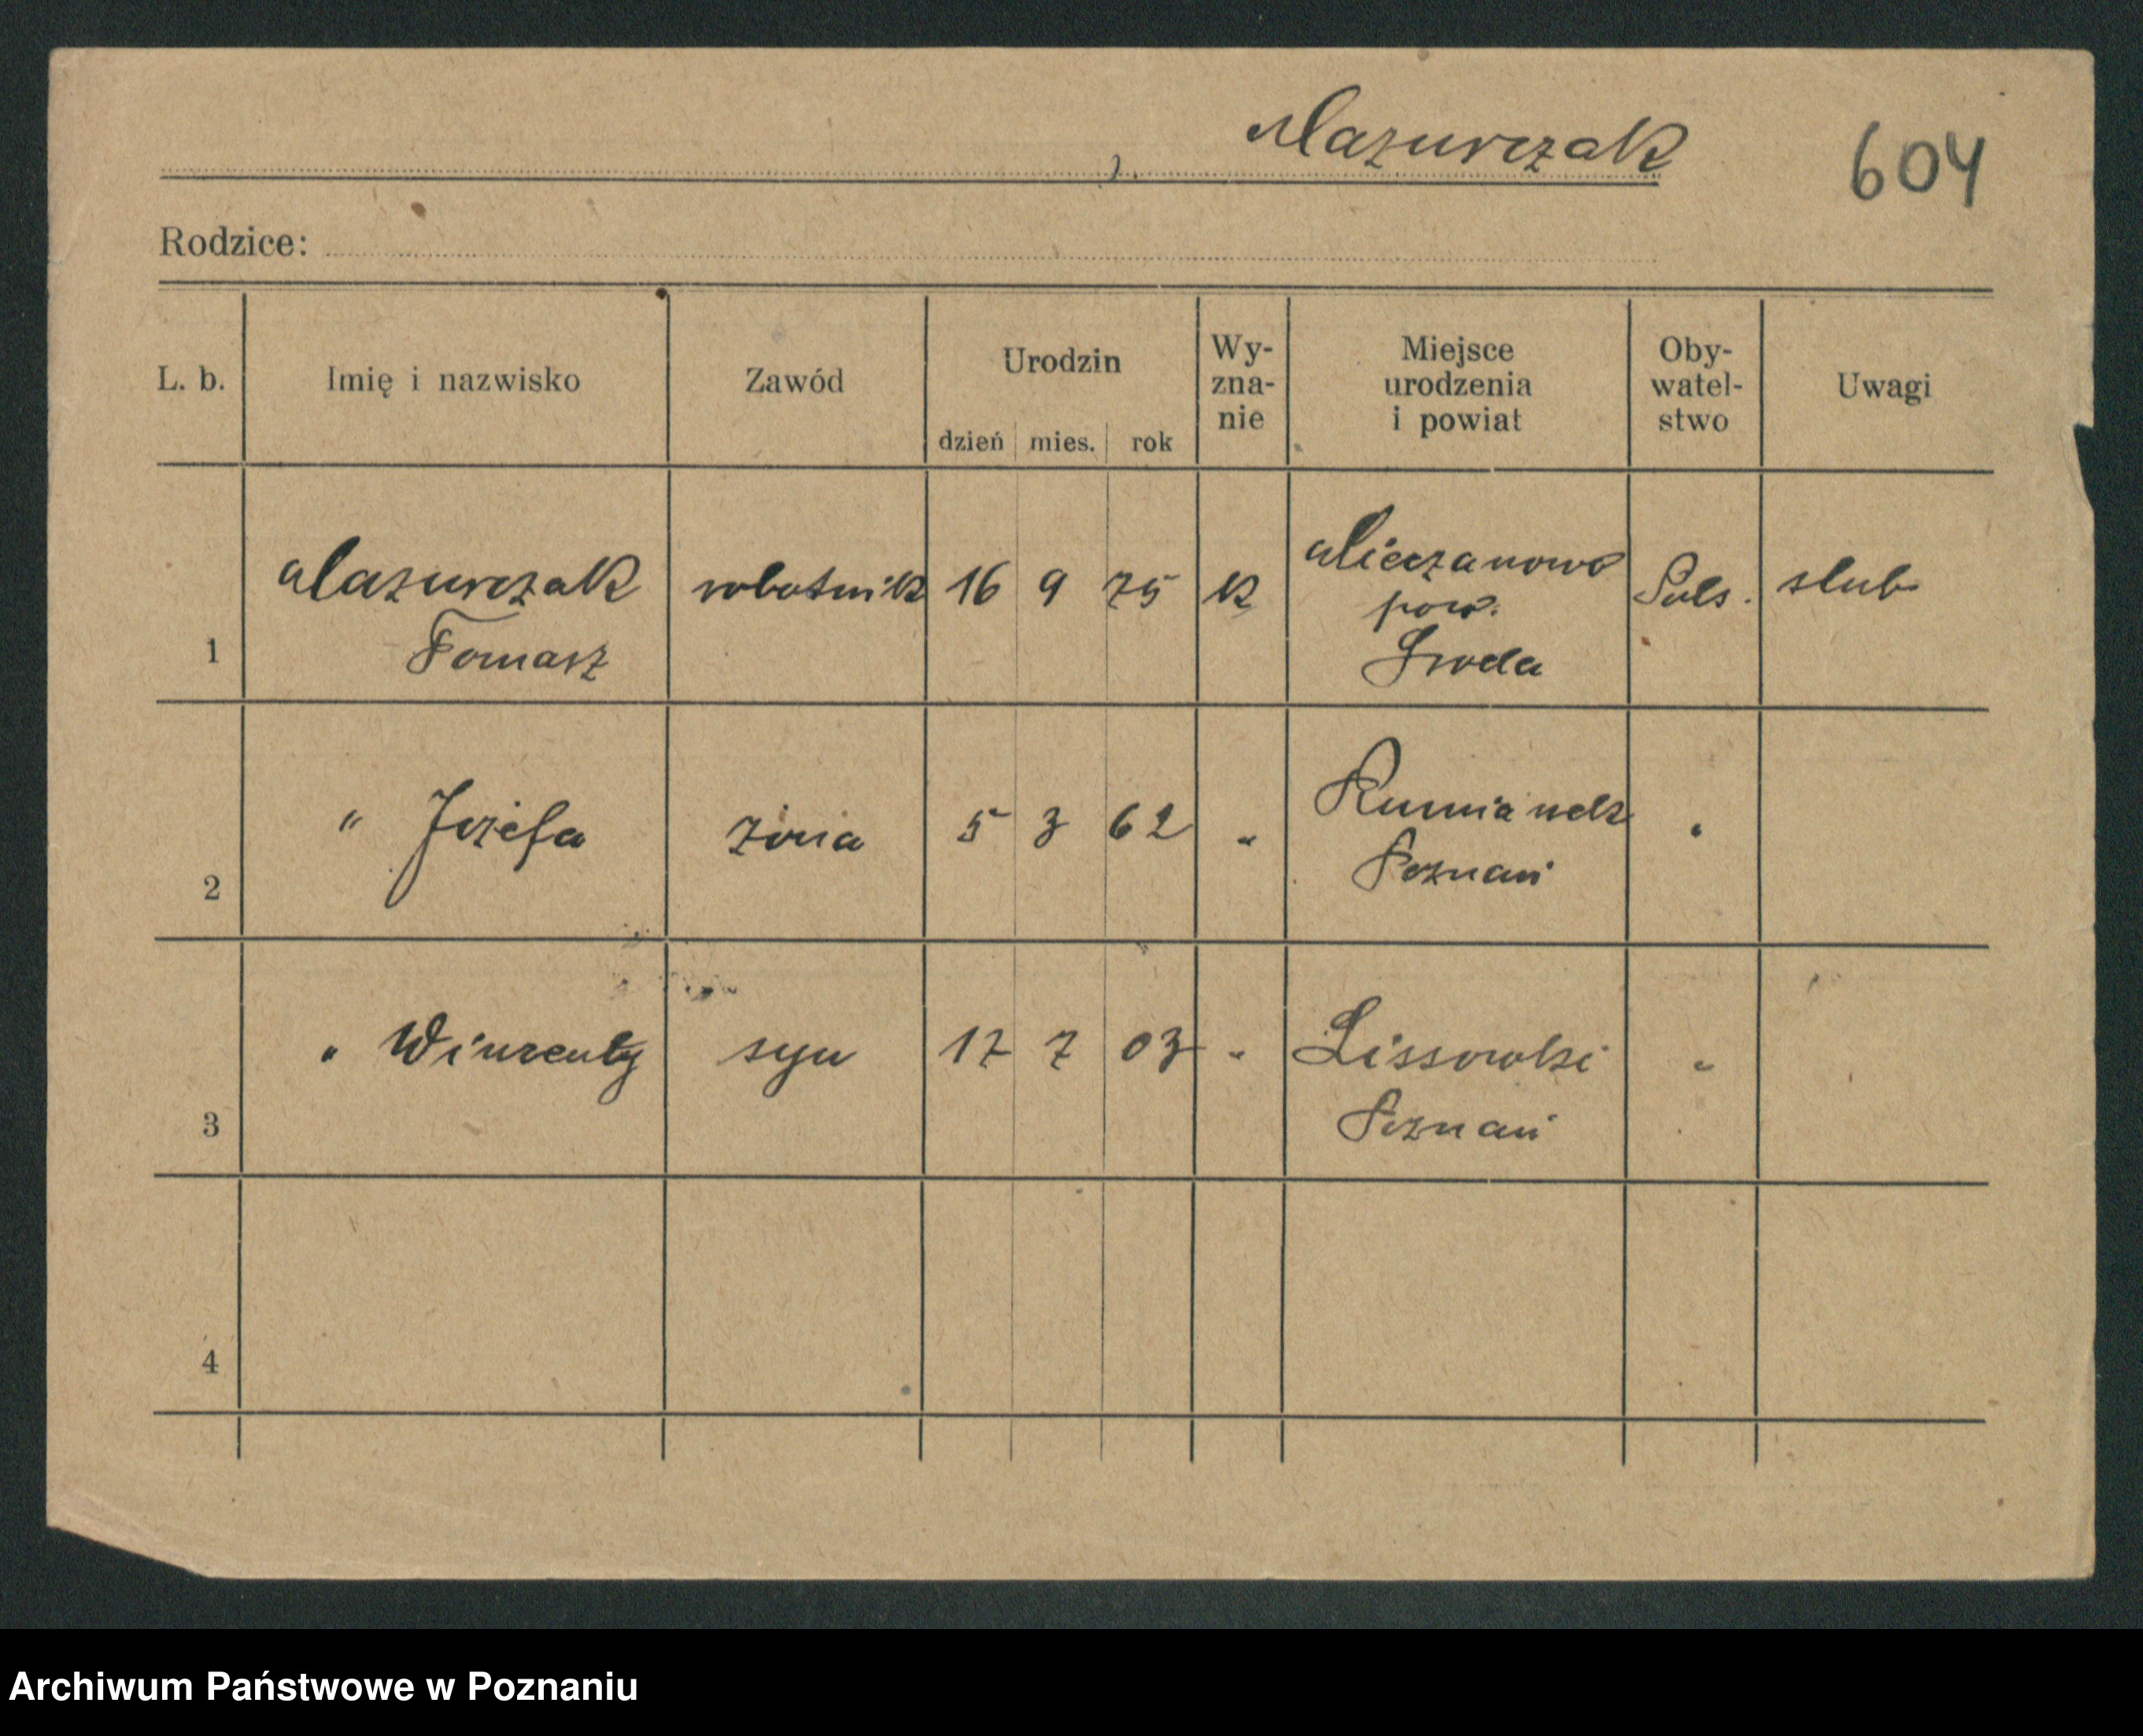 Mazurczak
604
Rodzice:
L. b. Imię i nazwisko Zawód Urodzin dzień mies. rok Wy-zna-nie Miejsce urodzenia i powiat Oby-watel-stwo Uwagi
1 Mazurczak Tomasz robotnik 16 9 75 k Mieczanowo pow. Sroda Pols. slub
2 " Jozefa żona 5 3 62 " Rumianek Poznań "
3 " Wincenty syn 17 7 03 " Lissowki Poznań "
4
Archiwum Państwowe w Poznaniu